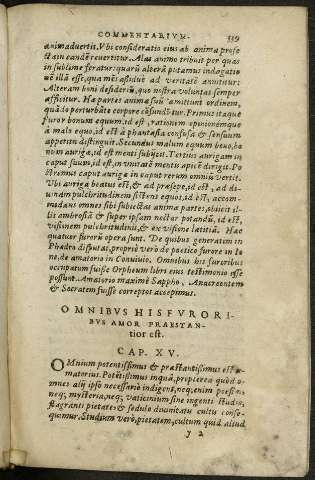 COMMENTARIVM. 319
animaduertis. Vbi consideratis eius ab anima profe
cta in eandē reuertitur. Alas animo tribuit per quas
in sublime feratur: quarū alterā putamus indagatio
nē illā esse, qua mēs assiduè ad veritatē annititur:
Alteram boni desideriū, quo nostra voluntas semper
afficitur. Hæ partes animæ suū amittunt ordinem,
quādo perturbāte corpore cōfundūtur. Primus itaque
furor bonum equum, id est, rationem opinionémque
à malo equo, id est à phantasia confusa & sensuum
appetitu distinguit. Secundus malum equum bono, bo
num aurigæ, id est menti subijcit. Tertius aurigam in
caput suum, id est, in vnitatē mentis apicē dirigit. Po
stremus caput aurigæ in caput rerum omniū vertit.
Vbi auriga beatus est, & ad præsepe, id est, ad di-
uinam pulchritudinem sistens equos, id est, accom-
modans omnes sibi subiectas animæ partes, obijcit il-
lis ambrosiā & super ipsam nectar potandū, id est,
visionem pulchritudinis, & ex visione lætitiā. Hæc
quatuor furorū opera sunt. De quibus generatim in
Phædro disputat, propriè verò de poëtico furore in Io
ne, de amatorio in Conuiuio. Omnibus his furoribus
occupatum fuisse Orpheum libri eius testimonio esse
possunt. Amatorio maximè Sappho, Anacreontem
& Socratem fuisse correptos accepimus.
OMNIBVS HIS FVRORI-
BVS AMOR PRAESTAN-
tior est.
CAP. XV.
OMnium potentissimus & præstantissimus est a-
matorius. Potētissimus inquā, propterea quòd o-
mnes alij ipso necessariò indigent, neq; enim poësin,
neq; mysteria, neq; vaticinium sine ingenti studio,
flagranti pietate, & sedulo diuinitatis cultu conse-
quimur. Studium verò, pietatem, cultum quid aliud
J 2